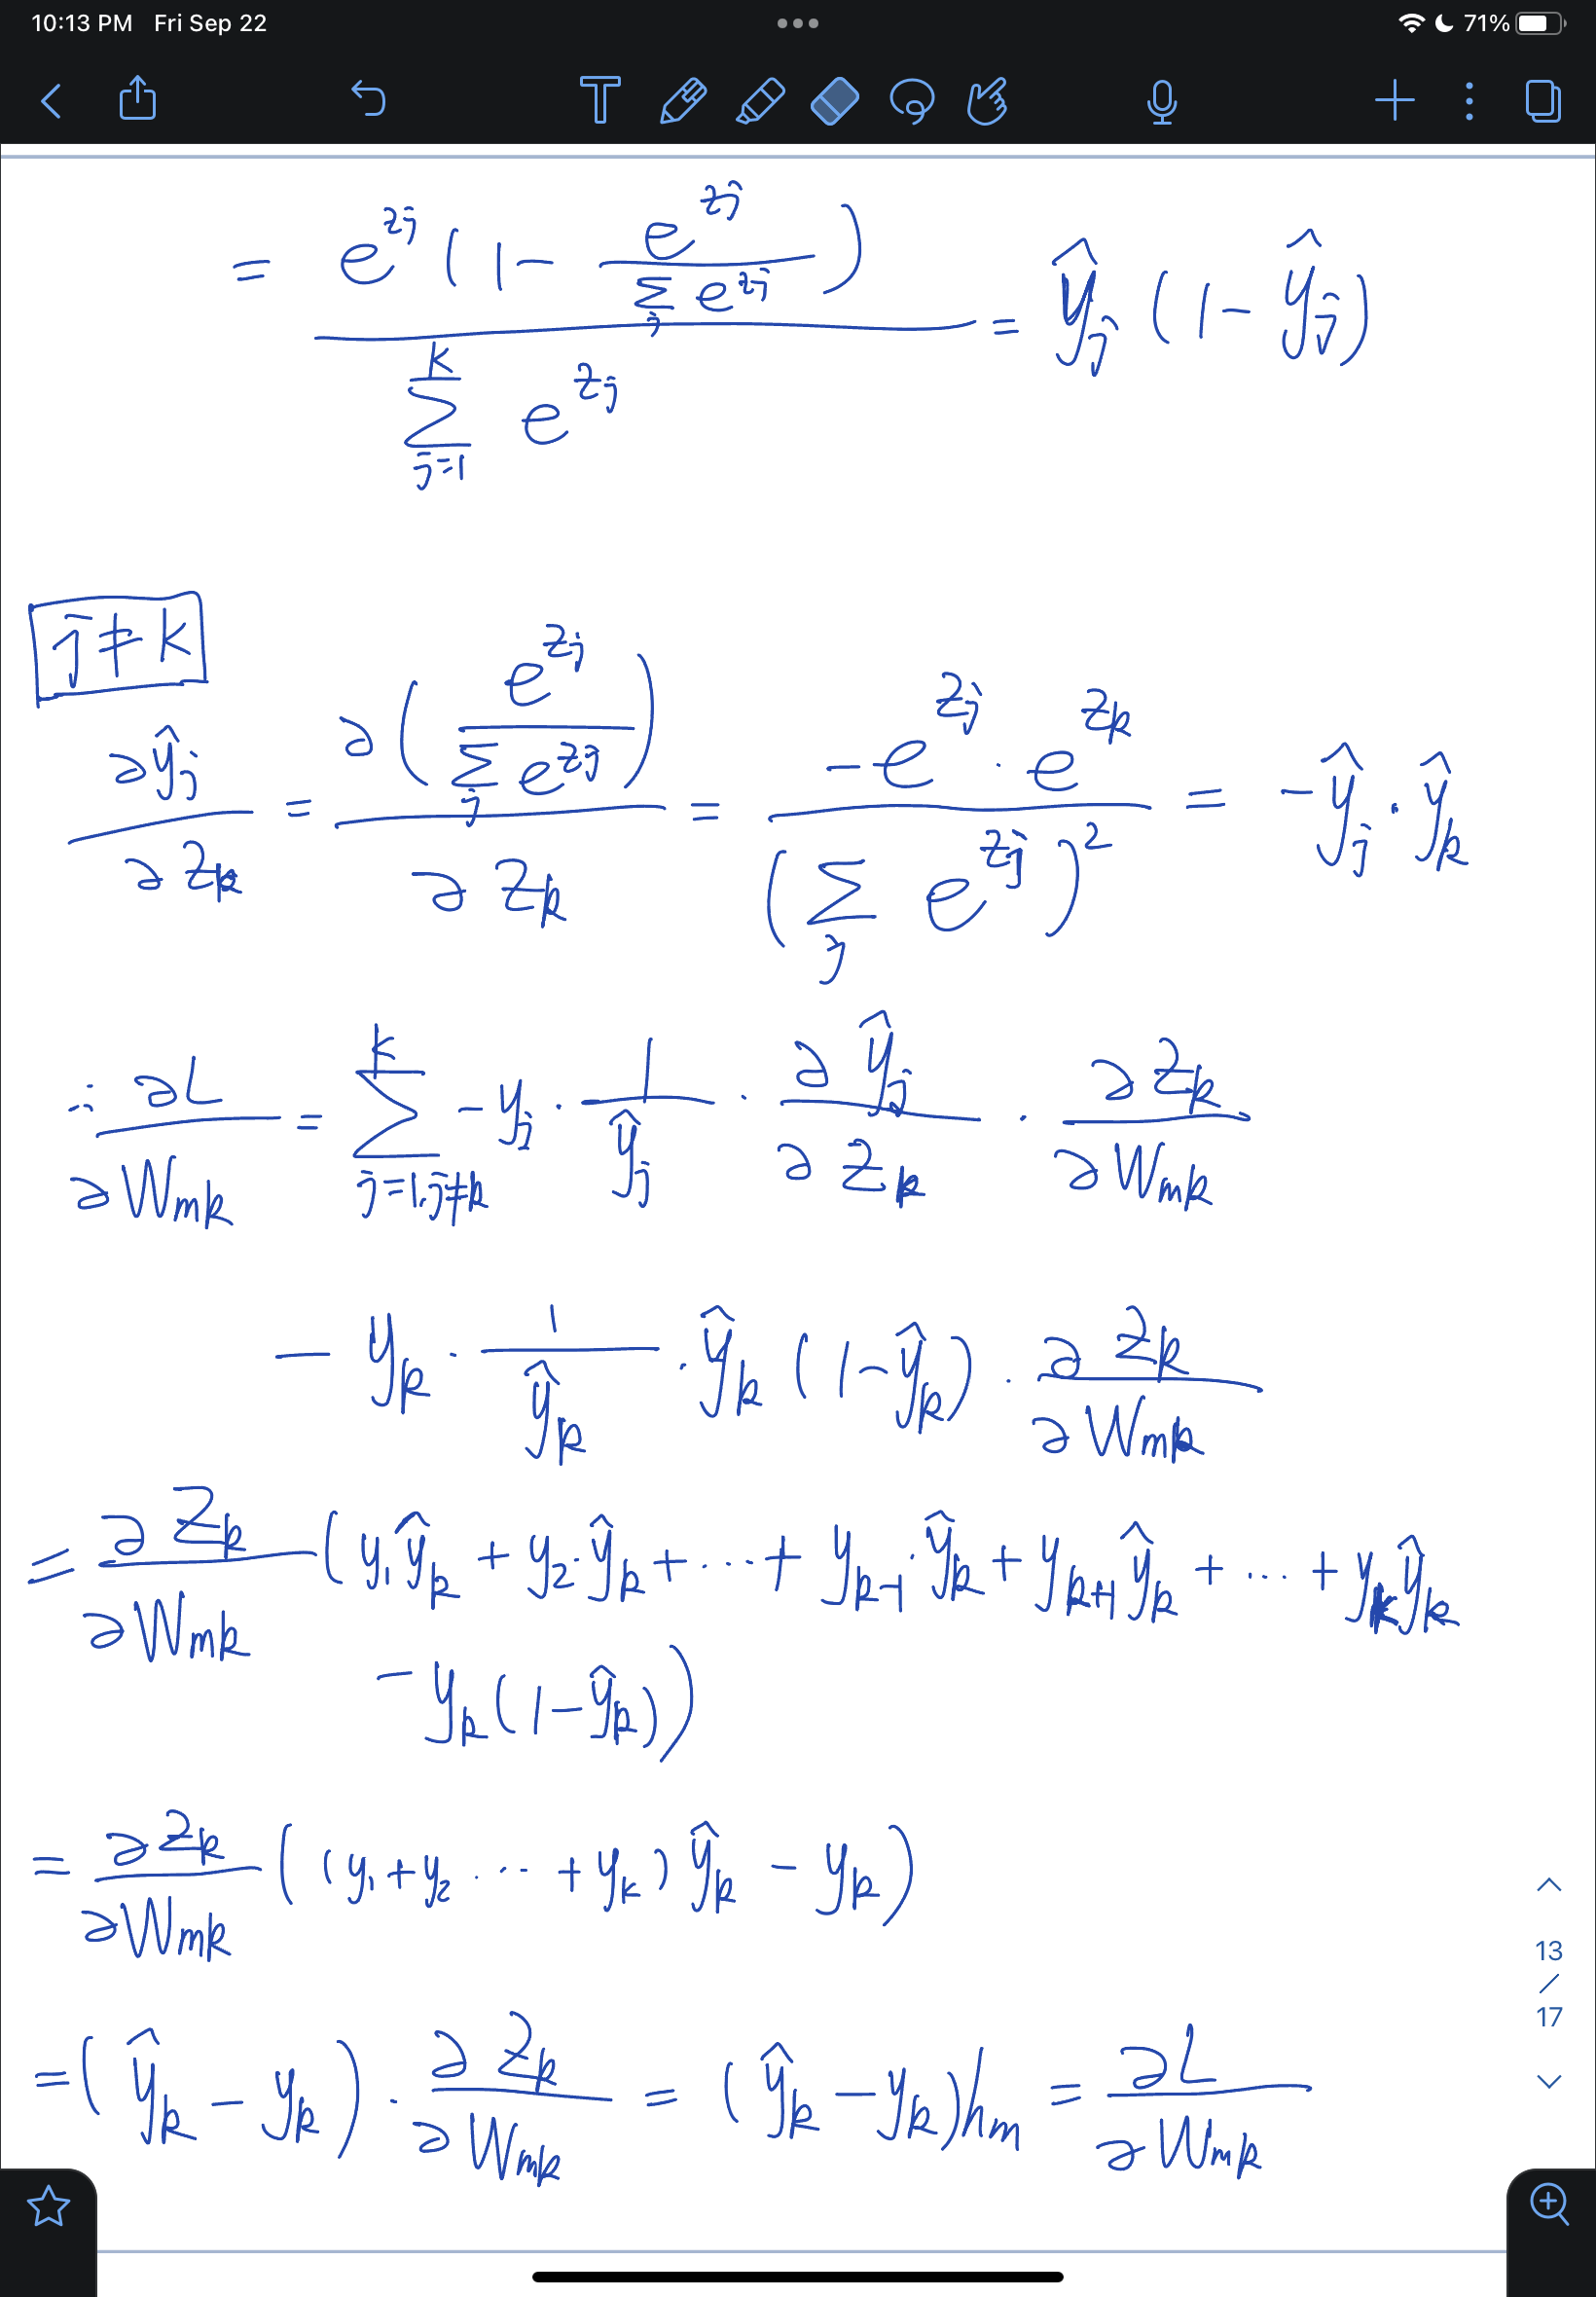 10:13 PM Fri Sep 22
71%
= e^{z_j} (1 - e^{z_j} / Σ_j e^{z_j}) / Σ_{j=1}^{K} e^{z_j} = ŷ_j (1 - ŷ_j)
j ≠ k
∂ŷ_j / ∂z_k = ∂(e^{z_j} / Σ_j e^{z_j}) / ∂z_k = -e^{z_j} · e^{z_k} / (Σ_j e^{z_j})^2 = -ŷ_j · ŷ_k
∴ ∂L / ∂W_{mk} = Σ_{j=1, j≠k}^{K} -y_j · 1 / ŷ_j · ∂ŷ_j / ∂z_k · ∂z_k / ∂W_{mk}
- y_k · 1 / ŷ_k · ŷ_k (1 - ŷ_k) · ∂z_k / ∂W_{mk}
= ∂z_k / ∂W_{mk} (y_1 ŷ_k + y_2 · ŷ_k + ... + y_{k-1} · ŷ_k + y_{k+1} ŷ_k + ... + y_K ŷ_k
- y_k (1 - ŷ_k))
= ∂z_k / ∂W_{mk} ((y_1 + y_2 ... + y_K) ŷ_k - y_k)
= (ŷ_k - y_k) · ∂z_k / ∂W_{mk} = (ŷ_k - y_k) h_m = ∂L / ∂W_{mk}
13
/
17